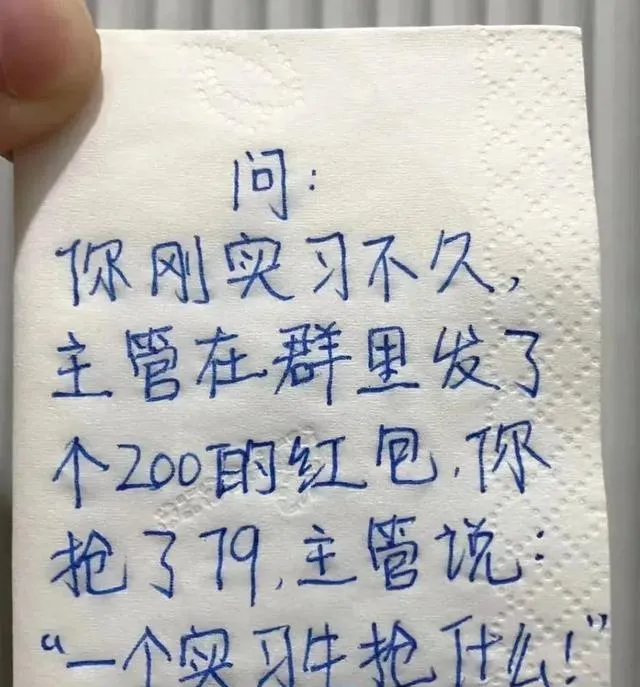 问：
你刚实习不久，
主管在群里发了
个200的红包，你
抢了79，主管说：
“一个实习生抢什么！”